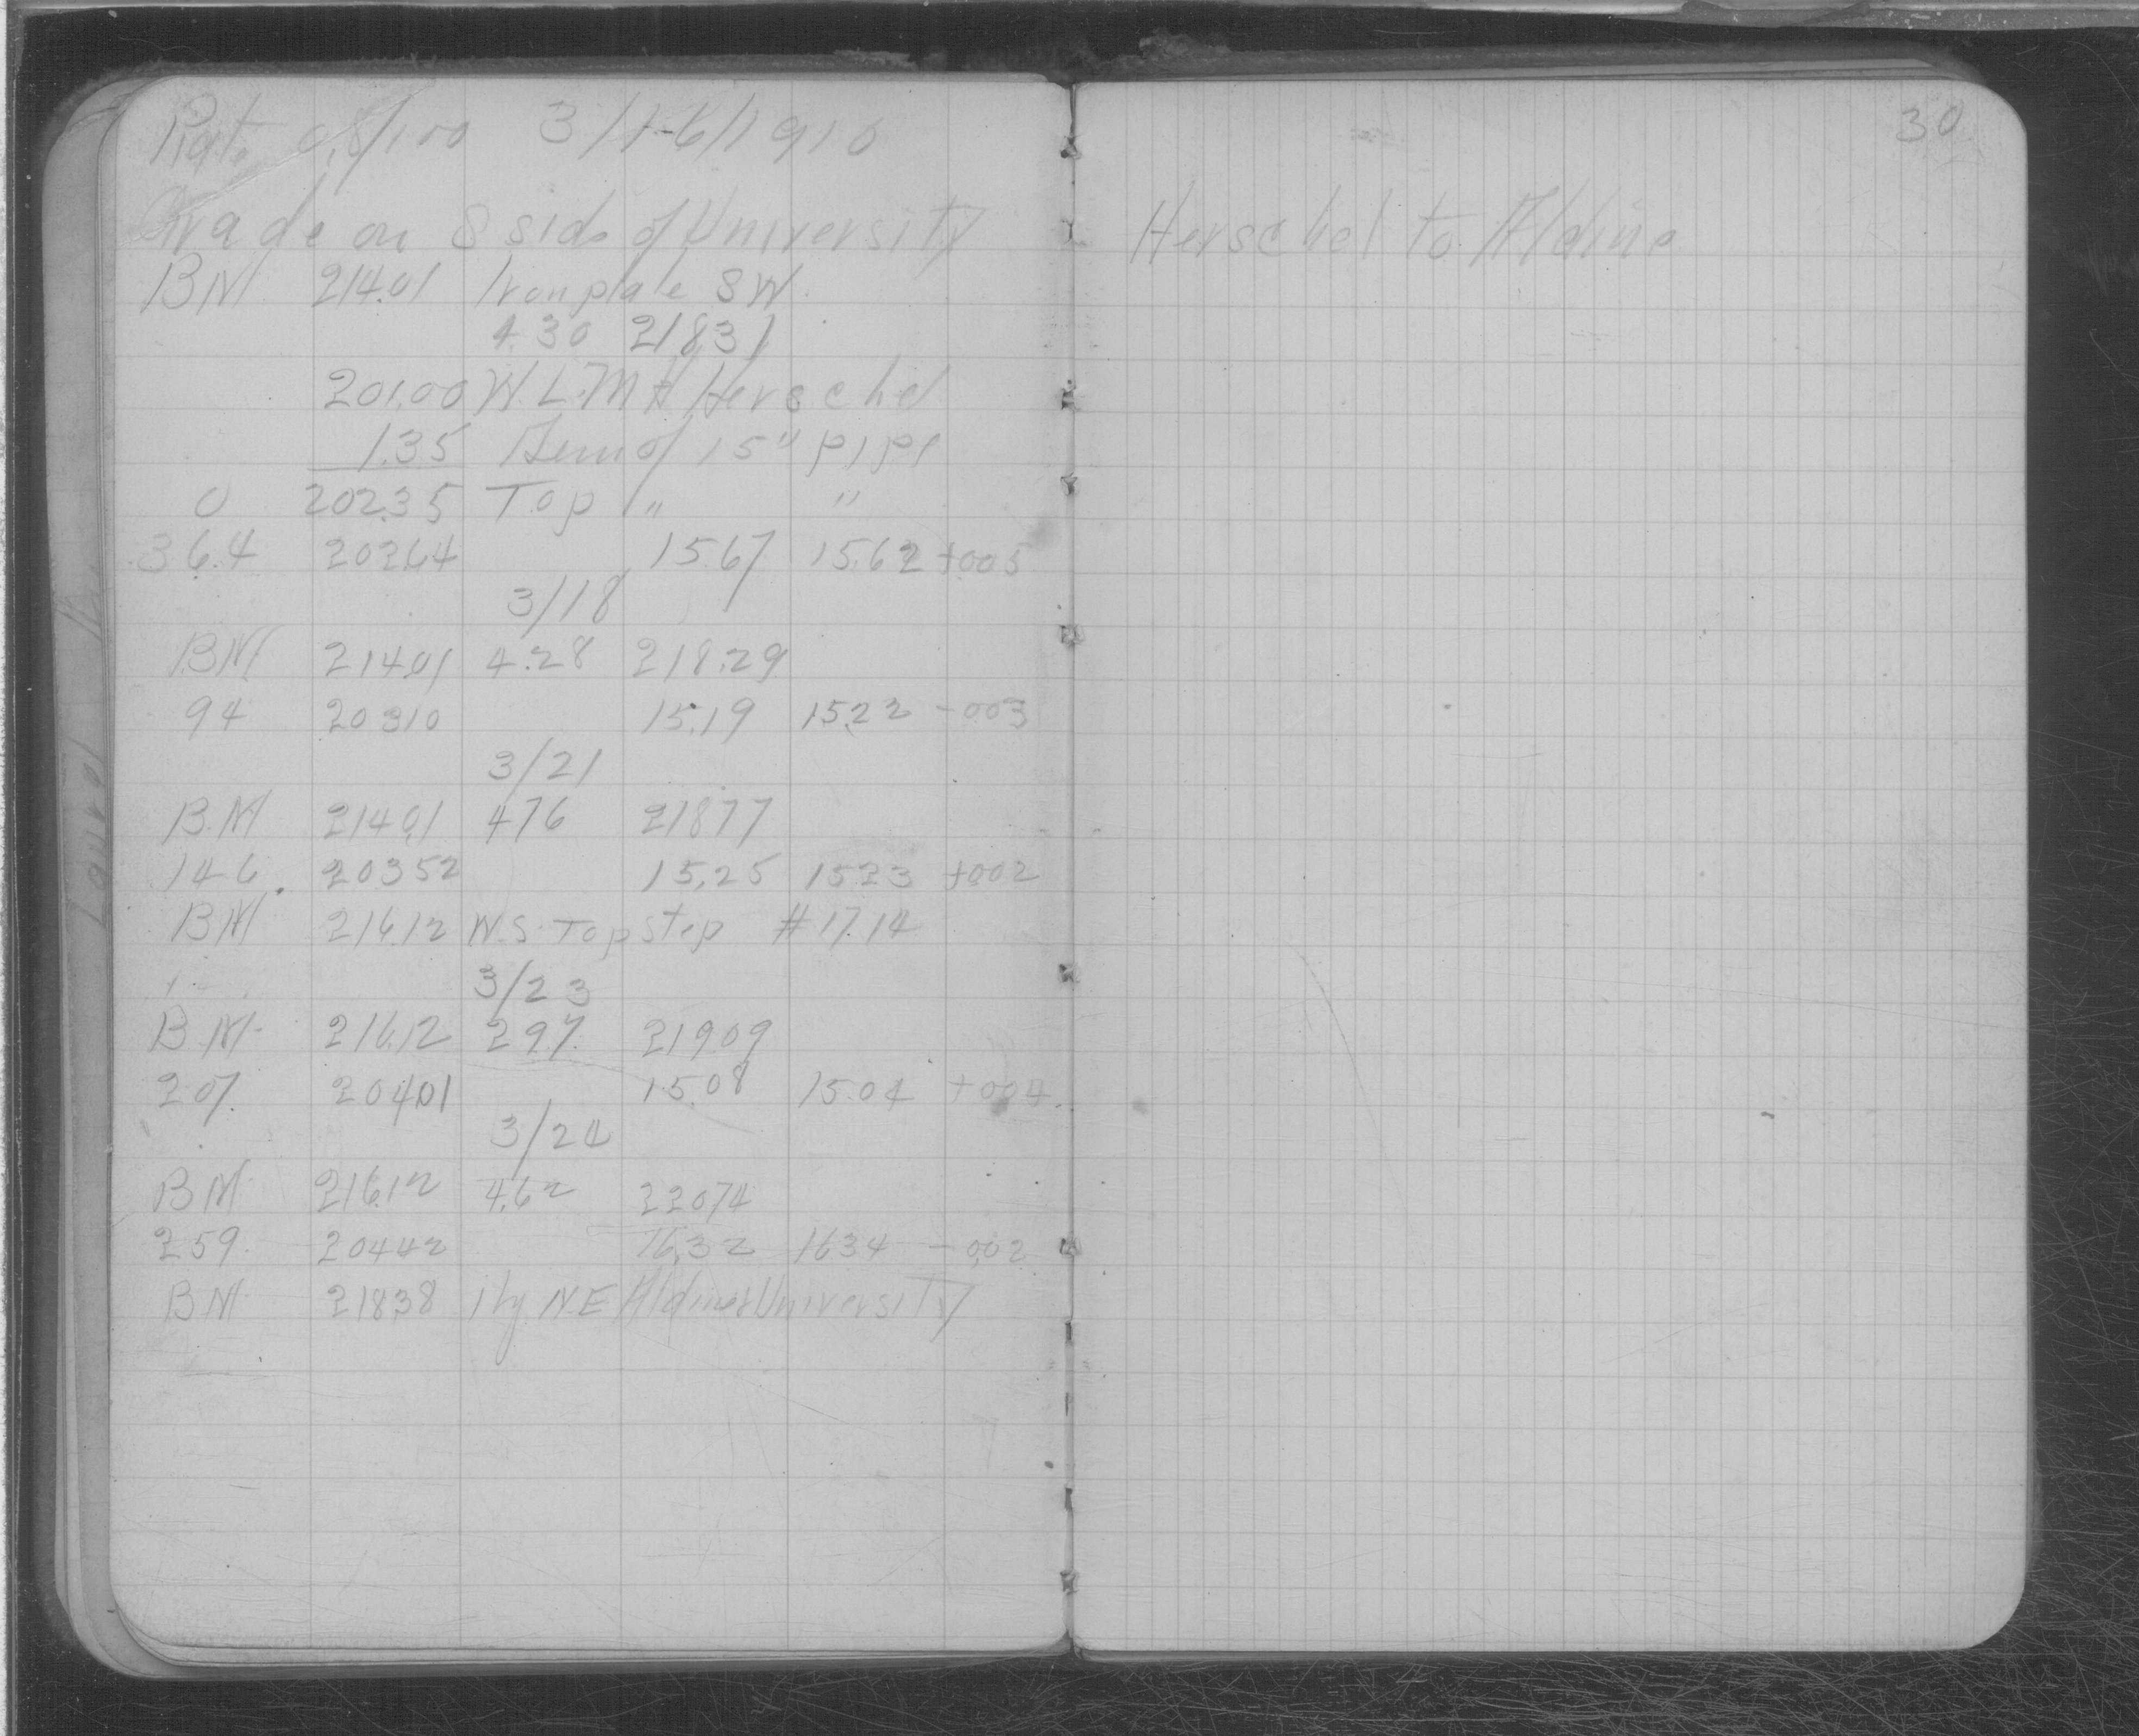 Rate 0.8/100 3/1-6/1910
Grade on S side of University
BM 214.01 Iron plate SW.
4.30 218.31
201.00 W.L.M.H Herschel
1.35 of 15" pipe
0 202.35 Top " "
36.4 202.64 15.67 15.62 +005
3/18
BM 214.01 4.28 218.29
94 203.10 15.19 15.22 -003
3/21
BM 214.01 476 218.77
146. 203.52 15.25 15.23 +002
BM 216.12 W.S. Top step #1714
3/23
BM 216.12 2.97 219.09
207. 204.01 15.08 15.04 +004
3/24
BM 216.12 4.62 220.74
259. 204.42 16.32 16.34 -002
BM 218.38 Hy N.E Aldine & University
Laurel
30
Herschel to Aldine